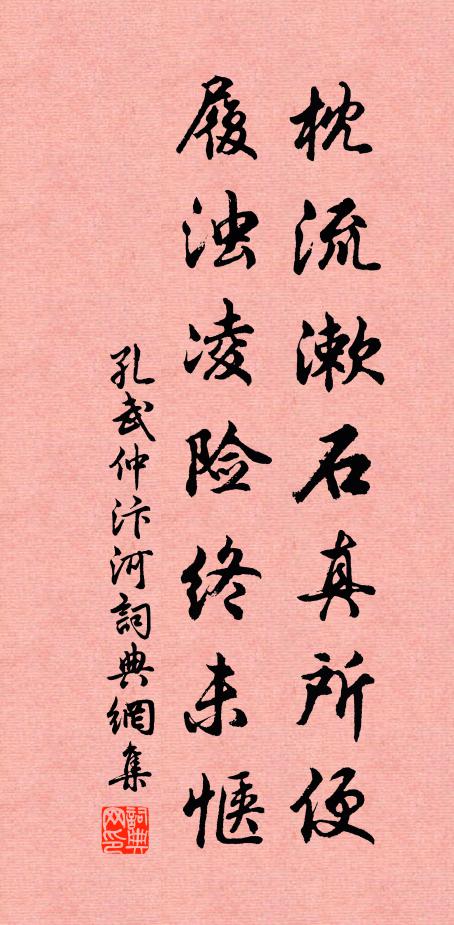 枕流漱石真所便
履浊凌险终未惬
孔武仲汴河詞典網集
詞典网印